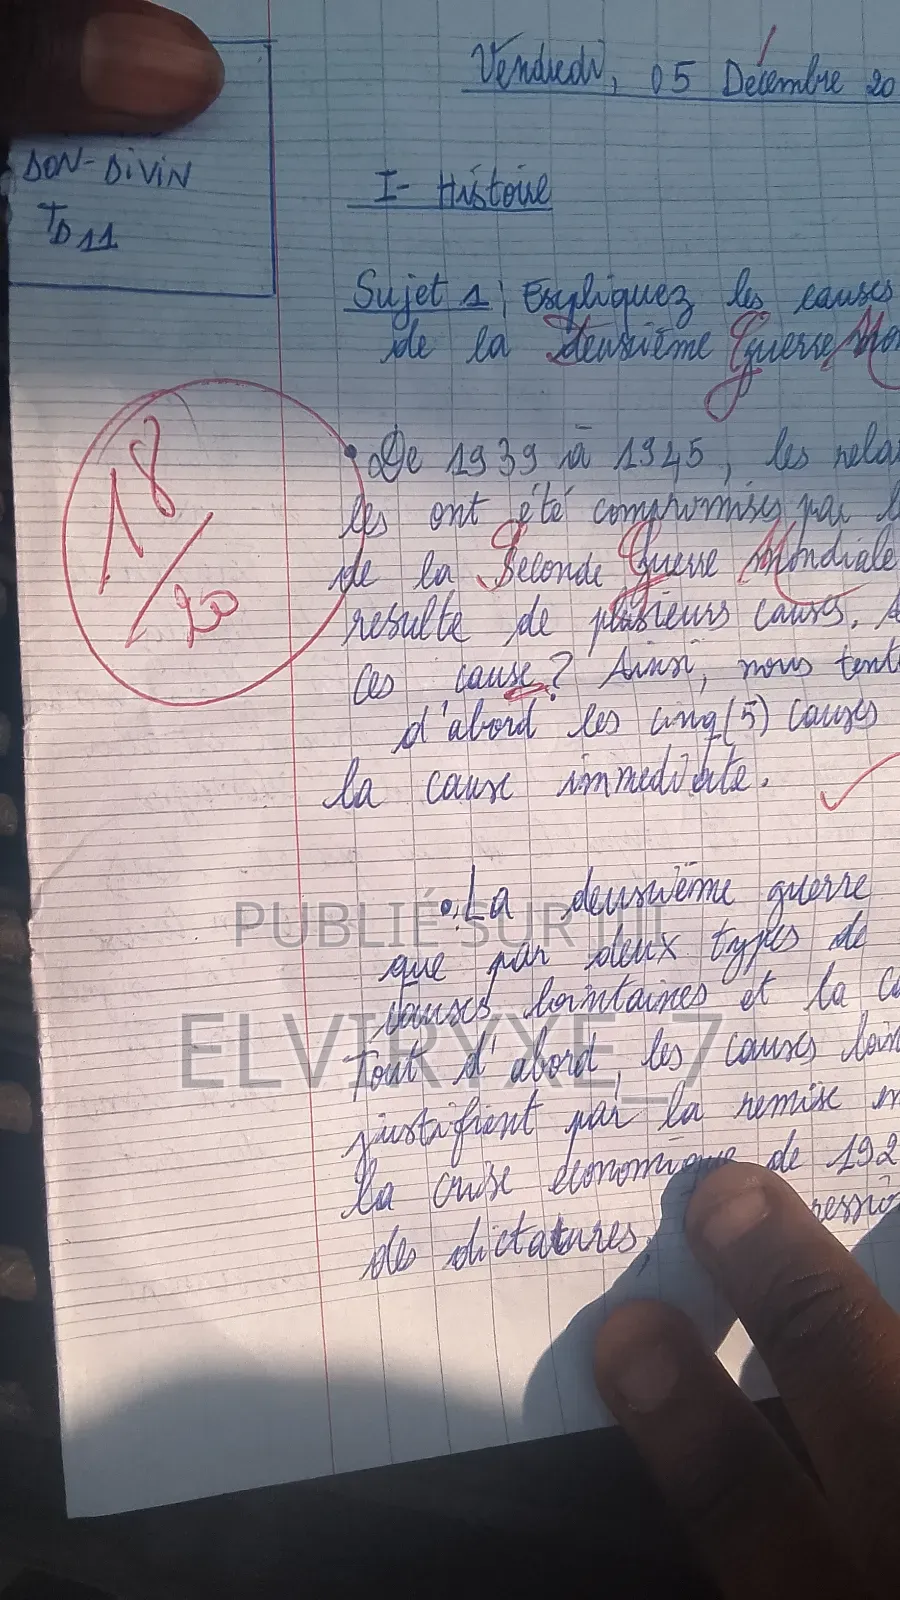 Vendredi, 05 Décembre 20
DON-DIVIN
TD11
I- Histoire
Sujet 1: Expliquez les causes
de la Deuxième Guerre Mon
18/20
De 1939 à 1945, les rela
les ont été compromises par l
de la Seconde Guerre Mondiale
resulte de plusieurs causes. A
ces cause? Ainsi, nous tent
d'abord les cinq(5) causes
la cause immediate.
La deuxième guerre
que par deux types de
causes lointaines et la ca
Tout d'abord, les causes loin
justifient par la remise en
la crise économique de 192
des dictatures, ressio
PUBLIÉ SUR
ELVIRYXE_7